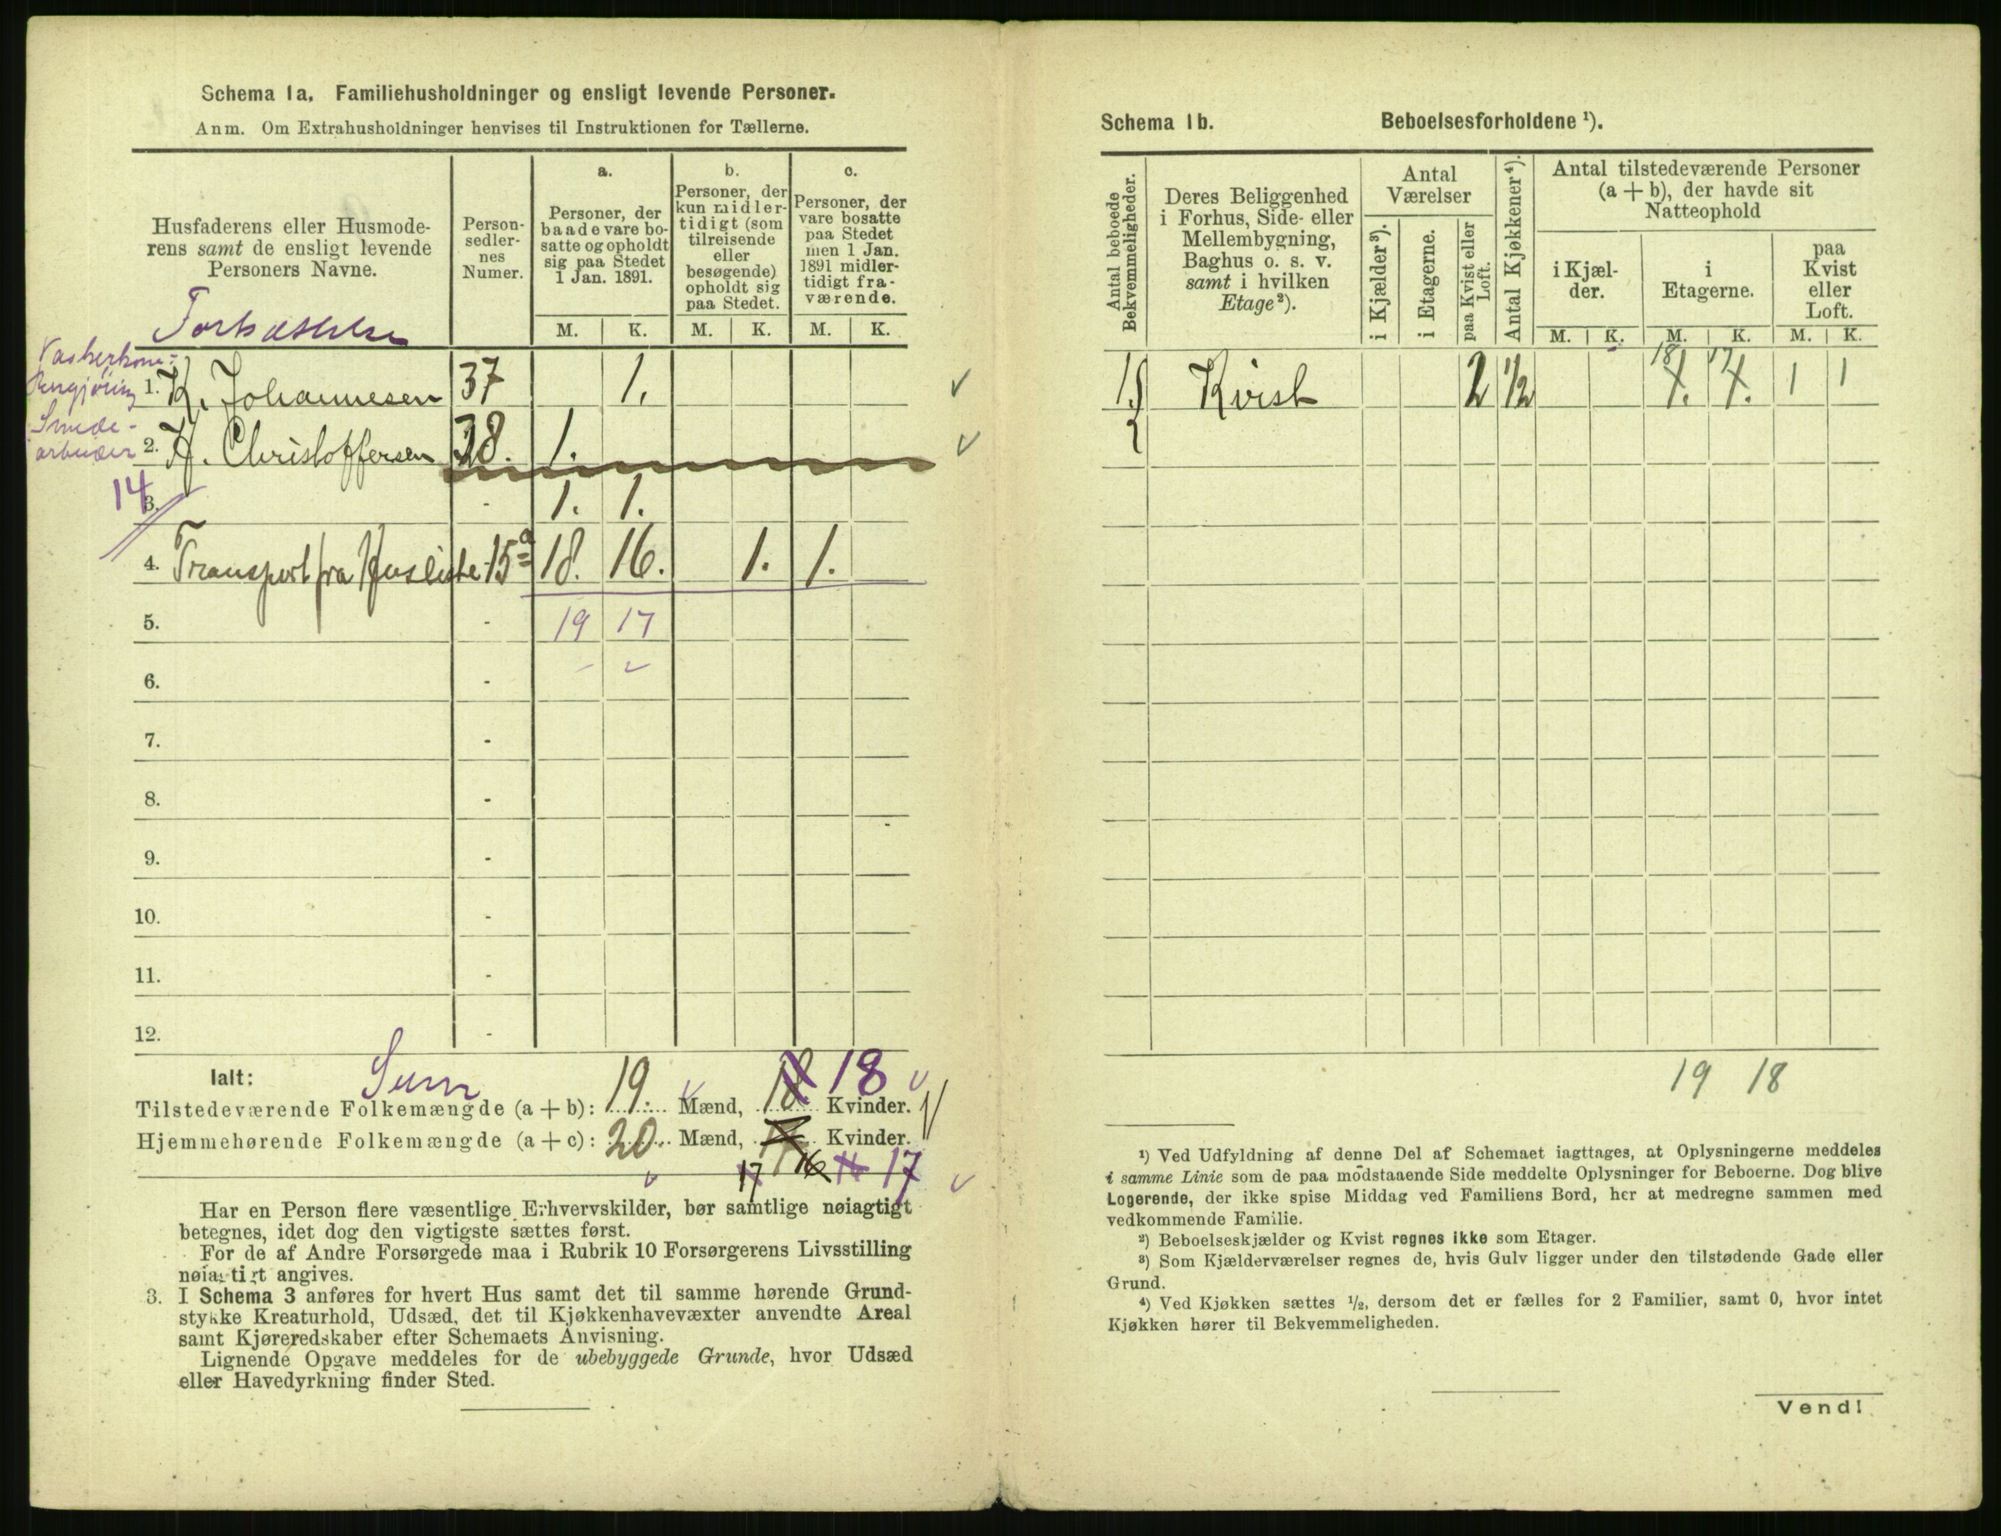 Schema 1a. Familiehusholdninger og ensligt levende Personer.
Anm. Om Extrahusholdninger henvises til Instruktionen for Tællerne.
Husfaderens eller Husmode-
rens samt de ensligt levende
Personers Navne.
Person-
sedler-
nes
Numer.
a.
Personer, der
baade vare bo-
satte og opholdt
sig paa Stedet
1 Jan. 1891.
b.
Personer, der
kun midler-
tidigt (som
tilreisende
eller
besøgende)
opholdt sig
paa Stedet.
c.
Personer, der
vare bosatte
paa Stedet
men 1 Jan.
1891 midler-
tidigt fra-
værende.
M. K. M. K. M. K.
Fortsættelse
Vaskerkone
Rengjöring
1. K. Johannesen 37 1.
Smede-
arbeider
2. H. Christoffersen 38. 1.
14
3. - 1. 1.
4. Transport fra Husliste 15a 18. 16. 1. 1.
5. - 19 17
6. -
7. -
8. -
9. -
10. -
11. -
12. -
Ialt: Sum
Tilstedeværende Folkemængde (a + b): 19. Mænd, 18 18 Kvinder.
Hjemmehørende Folkemængde (a + c): 20. Mænd, Kvinder.
17 16 17
Har en Person flere væsentlige Erhvervskilder, bør samtlige nøiagtigt
betegnes, idet dog den vigtigste sættes først.
For de af Andre Forsørgede maa i Rubrik 10 Forsørgerens Livsstilling
nøiagtigt angives.
3. I Schema 3 anføres for hvert Hus samt det til samme hørende Grund-
stykke Kreaturhold, Udsæd, det til Kjøkkenhavevæxter anvendte Areal
samt Kjøreredskaber efter Schemaets Anvisning.
Lignende Opgave meddeles for de ubebyggede Grunde, hvor Udsæd
eller Havedyrkning finder Sted.
Schema 1b. Beboelsesforholdene ¹).
Antal beboede
Bekvemmeligheder.
Deres Beliggenhed
i Forhus, Side- eller
Mellembygning,
Baghus o. s. v.
samt i hvilken
Etage²).
Antal
Værelser
i Kjælder³).
i Etagerne.
paa Kvist eller
Loft.
Antal Kjøkkener⁴).
Antal tilstedeværende Personer
(a + b), der havde sit
Natteophold
i Kjæl-
der.
i
Etagerne.
paa
Kvist
eller
Loft.
M. K. M. K. M. K.
Kvist 2 1/2 18 17 1 1
19 18
¹) Ved Udfyldning af denne Del af Schemaet iagttages, at Oplysningerne meddeles
i samme Linie som de paa modstaaende Side meddelte Oplysninger for Beboerne. Dog blive
Logerende, der ikke spise Middag ved Familiens Bord, her at medregne sammen med
vedkommende Familie.
²) Beboelseskjælder og Kvist regnes ikke som Etager.
³) Som Kjælderværelser regnes de, hvis Gulv ligger under den tilstødende Gade eller
Grund.
⁴) Ved Kjøkken sættes 1/2, dersom det er fælles for 2 Familier, samt 0, hvor intet
Kjøkken hører til Bekvemmeligheden.
Vend!